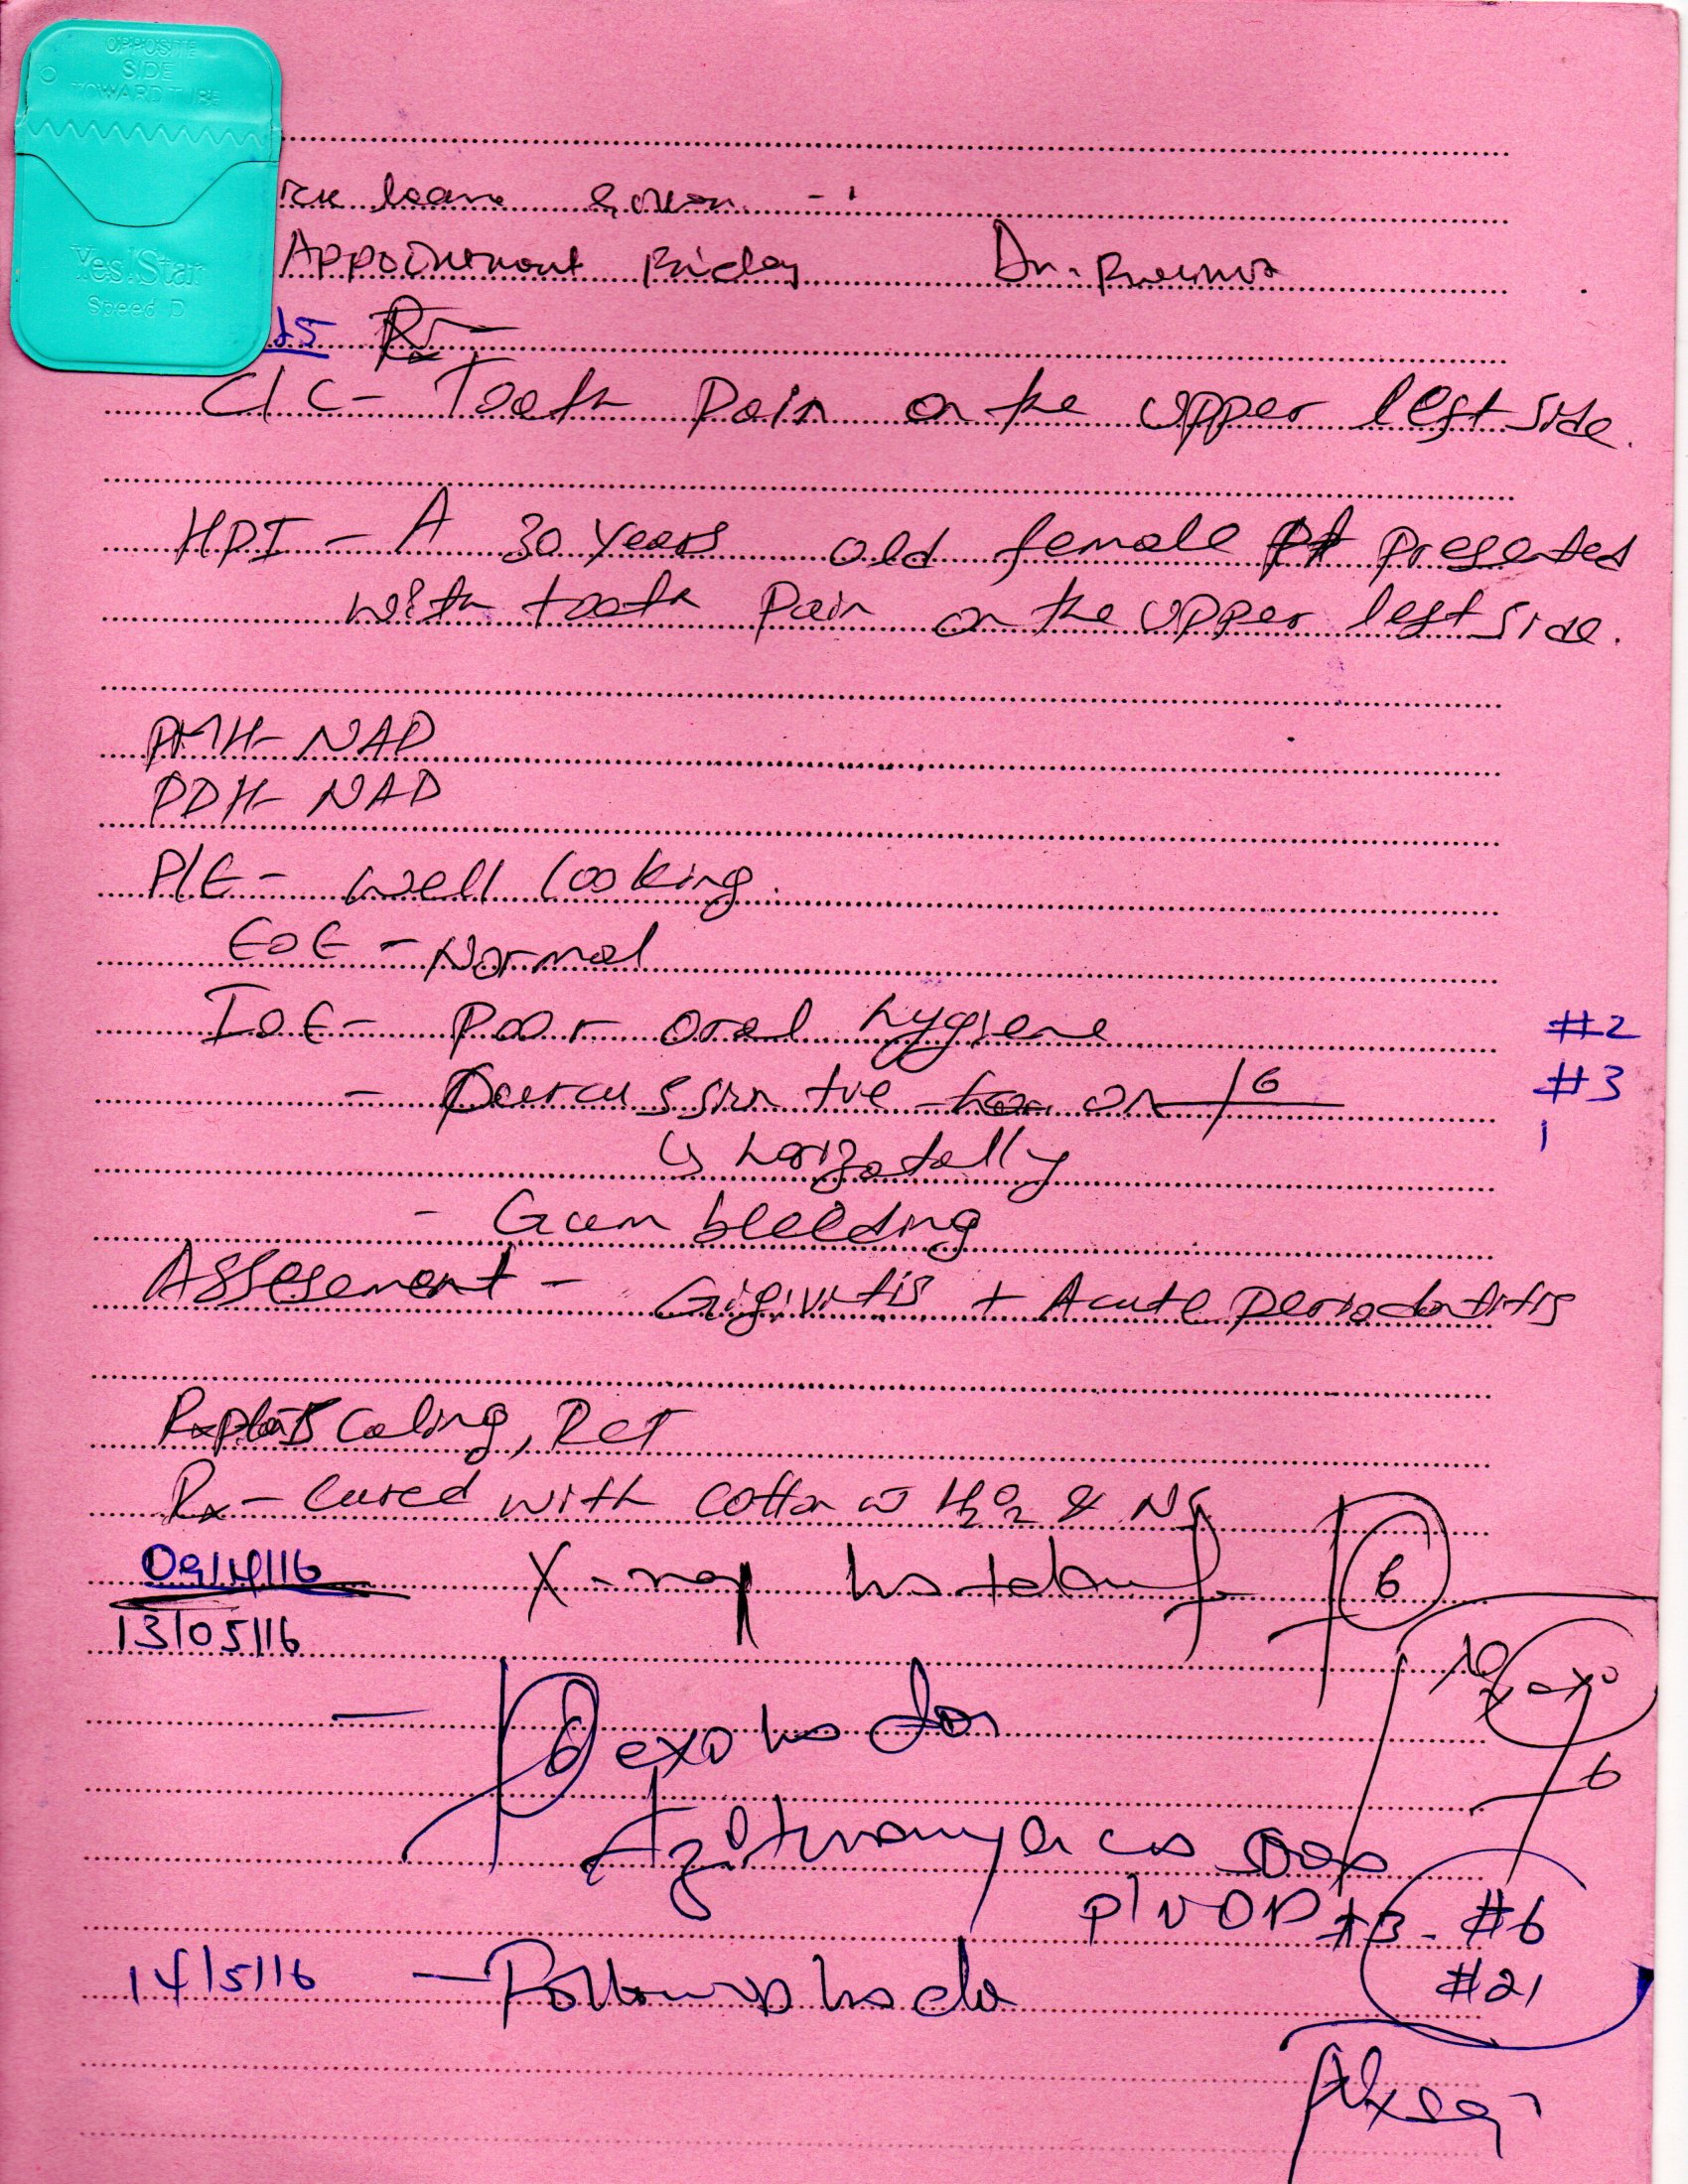 OPPOSITE
SIDE
TOWARD TUBE
Yes!Star
Speed D
Appointment Friday Dr.
C/C- Tooth Pain on the upper left side.
HPI - A 30 years old female pt presented
with tooth pain on the upper left side.
PMH- NAD
PDH- NAD
P/E- well looking.
EOE - Normal
IOE- Poor oral hygiene #2
- Percussion +ve on 6 #3
horizotally 1
- Gum bleeding
Assesement - Gigivitis + Acute periodontitis
Scaling, RCT
Rx- cured with cotton w H2O2 & NS
X-ray has taken 6
13/05/16
10 exo
- 6 exo has don
6
#3 - #6
14/5/16 - Followup has do #21